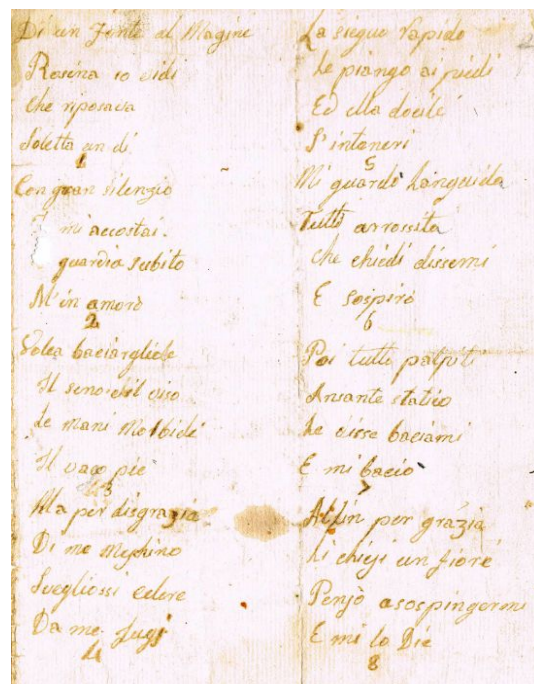 Di un Fonte al Magine
Rosina io vidi
Che riposava
Soletta un di
1
Con gran silenzio
mi accostai.
guardia subito
M'in amorò
2
Volea baciargliele
Il seno e il viso
Le mani Morbide
Il vago piè
3
Ma per disgrazia
Di me Meshino
Svegliossi celere
Da me fugì
4
La siegue rapido
Le piango ai piedi
Ed ella docile
S'inteneri
5
Mi guardò Languida
Tutta arrossita
Che chiedi dissemi
E sospirò
6
Poi tutto palpiti
Ansante
Le disse baciami
E mi baciò
7
Alfin per grazia
Li chiesi un fiore
Pensò asospingermi
E mi lo Diè
8